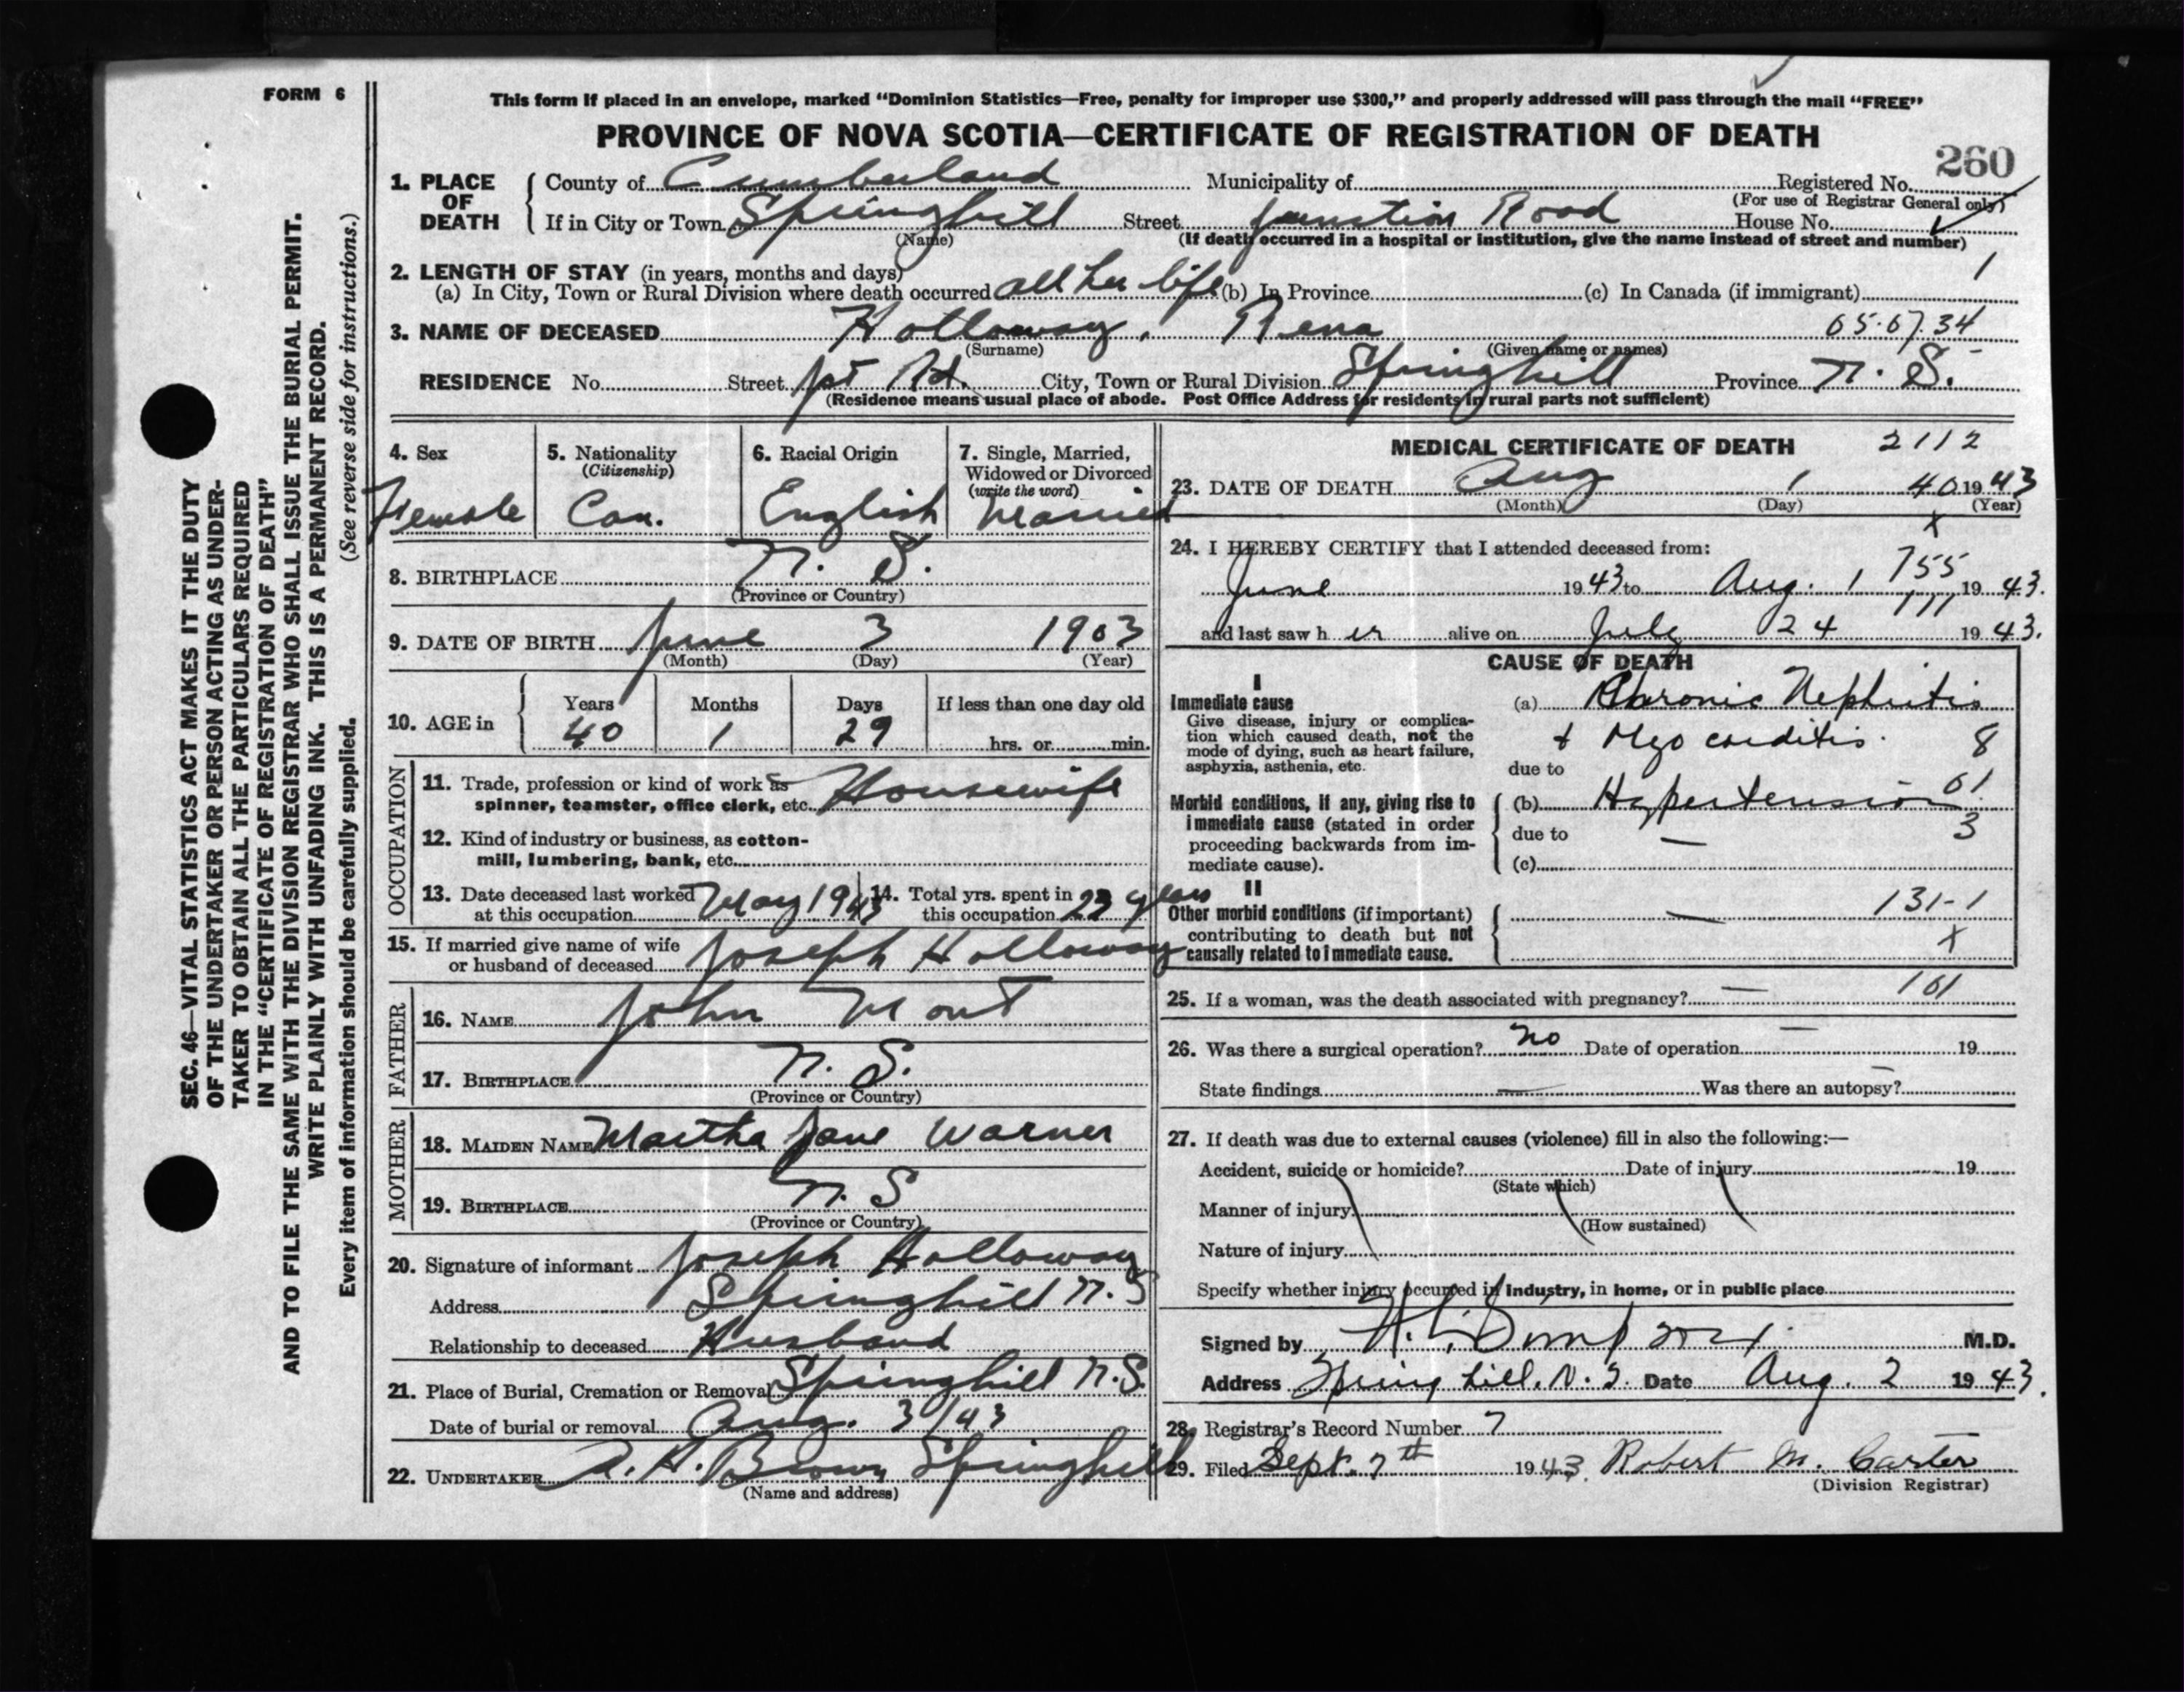 FORM 6
This form if placed in an envelope, marked “Dominion Statistics—Free, penalty for improper use $300,” and properly addressed will pass through the mail “FREE”
PROVINCE OF NOVA SCOTIA—CERTIFICATE OF REGISTRATION OF DEATH
260
1. PLACE OF DEATH { County of Cumberland Municipality of Registered No.
(For use of Registrar General only)
If in City or Town Springhill Street Junction Road House No.
(Name) (If death occurred in a hospital or institution, give the name instead of street and number)
2. LENGTH OF STAY (in years, months and days) 1
(a) In City, Town or Rural Division where death occurred all her life (b) In Province (c) In Canada (if immigrant)
3. NAME OF DECEASED Holloway, Rena 65.67.34
(Surname) (Given name or names)
RESIDENCE No. Street Jct Rd. City, Town or Rural Division Springhill Province N. S.
(Residence means usual place of abode. Post Office Address for residents in rural parts not sufficient)
4. Sex
Female
5. Nationality
(Citizenship)
Can.
6. Racial Origin
English
7. Single, Married,
Widowed or Divorced
(write the word)
Married
8. BIRTHPLACE N. S.
(Province or Country)
9. DATE OF BIRTH June 3 1903
(Month) (Day) (Year)
10. AGE in { Years Months Days If less than one day old
40 1 29 hrs. or min.
OCCUPATION
11. Trade, profession or kind of work as
spinner, teamster, office clerk, etc. Housewife
12. Kind of industry or business, as cotton-
mill, lumbering, bank, etc.
13. Date deceased last worked
at this occupation May 1943
14. Total yrs. spent in
this occupation 23 years
15. If married give name of wife
or husband of deceased Joseph Holloway
FATHER
16. NAME John Mont
17. BIRTHPLACE N. S.
(Province or Country)
MOTHER
18. MAIDEN NAME Martha Jane Warner
19. BIRTHPLACE N. S
(Province or Country)
20. Signature of informant Joseph Holloway
Address Springhill N. S
Relationship to deceased Husband
21. Place of Burial, Cremation or Removal Springhill N.S.
Date of burial or removal Aug. 3/43
22. UNDERTAKER A. H. Brown Springhill
(Name and address)
MEDICAL CERTIFICATE OF DEATH 2112
23. DATE OF DEATH Aug 1 40 1943
(Month) (Day) (Year)
X
24. I HEREBY CERTIFY that I attended deceased from:
755
June 1943 to Aug. 1 1943.
111
and last saw her alive on July 24 1943.
CAUSE OF DEATH
I
Immediate cause
Give disease, injury or complica-
tion which caused death, not the
mode of dying, such as heart failure,
asphyxia, asthenia, etc.
(a) Chronic Nephritis
+ Myocarditis. 8
due to
61
Morbid conditions, if any, giving rise to
immediate cause (stated in order
proceeding backwards from im-
mediate cause).
(b) Hypertension
due to — 3
(c)
II
Other morbid conditions (if important)
contributing to death but not
causally related to immediate cause.
— 131-1
X
25. If a woman, was the death associated with pregnancy? — 161
26. Was there a surgical operation? No Date of operation — 19
State findings — Was there an autopsy? —
27. If death was due to external causes (violence) fill in also the following:—
Accident, suicide or homicide? Date of injury 19
(State which)
Manner of injury
(How sustained)
Nature of injury
Specify whether injury occurred in Industry, in home, or in public place
Signed by Simpson M.D.
Address Springhill, N. S. Date Aug. 2 1943.
28. Registrar's Record Number 7
29. Filed Sept. 7th 1943. Robert M. Carter
(Division Registrar)
SEC. 46—VITAL STATISTICS ACT MAKES IT THE DUTY
OF THE UNDERTAKER OR PERSON ACTING AS UNDER-
TAKER TO OBTAIN ALL THE PARTICULARS REQUIRED
IN THE “CERTIFICATE OF REGISTRATION OF DEATH”
AND TO FILE THE SAME WITH THE DIVISION REGISTRAR WHO SHALL ISSUE THE BURIAL PERMIT.
WRITE PLAINLY WITH UNFADING INK. THIS IS A PERMANENT RECORD.
Every item of information should be carefully supplied. (See reverse side for instructions.)